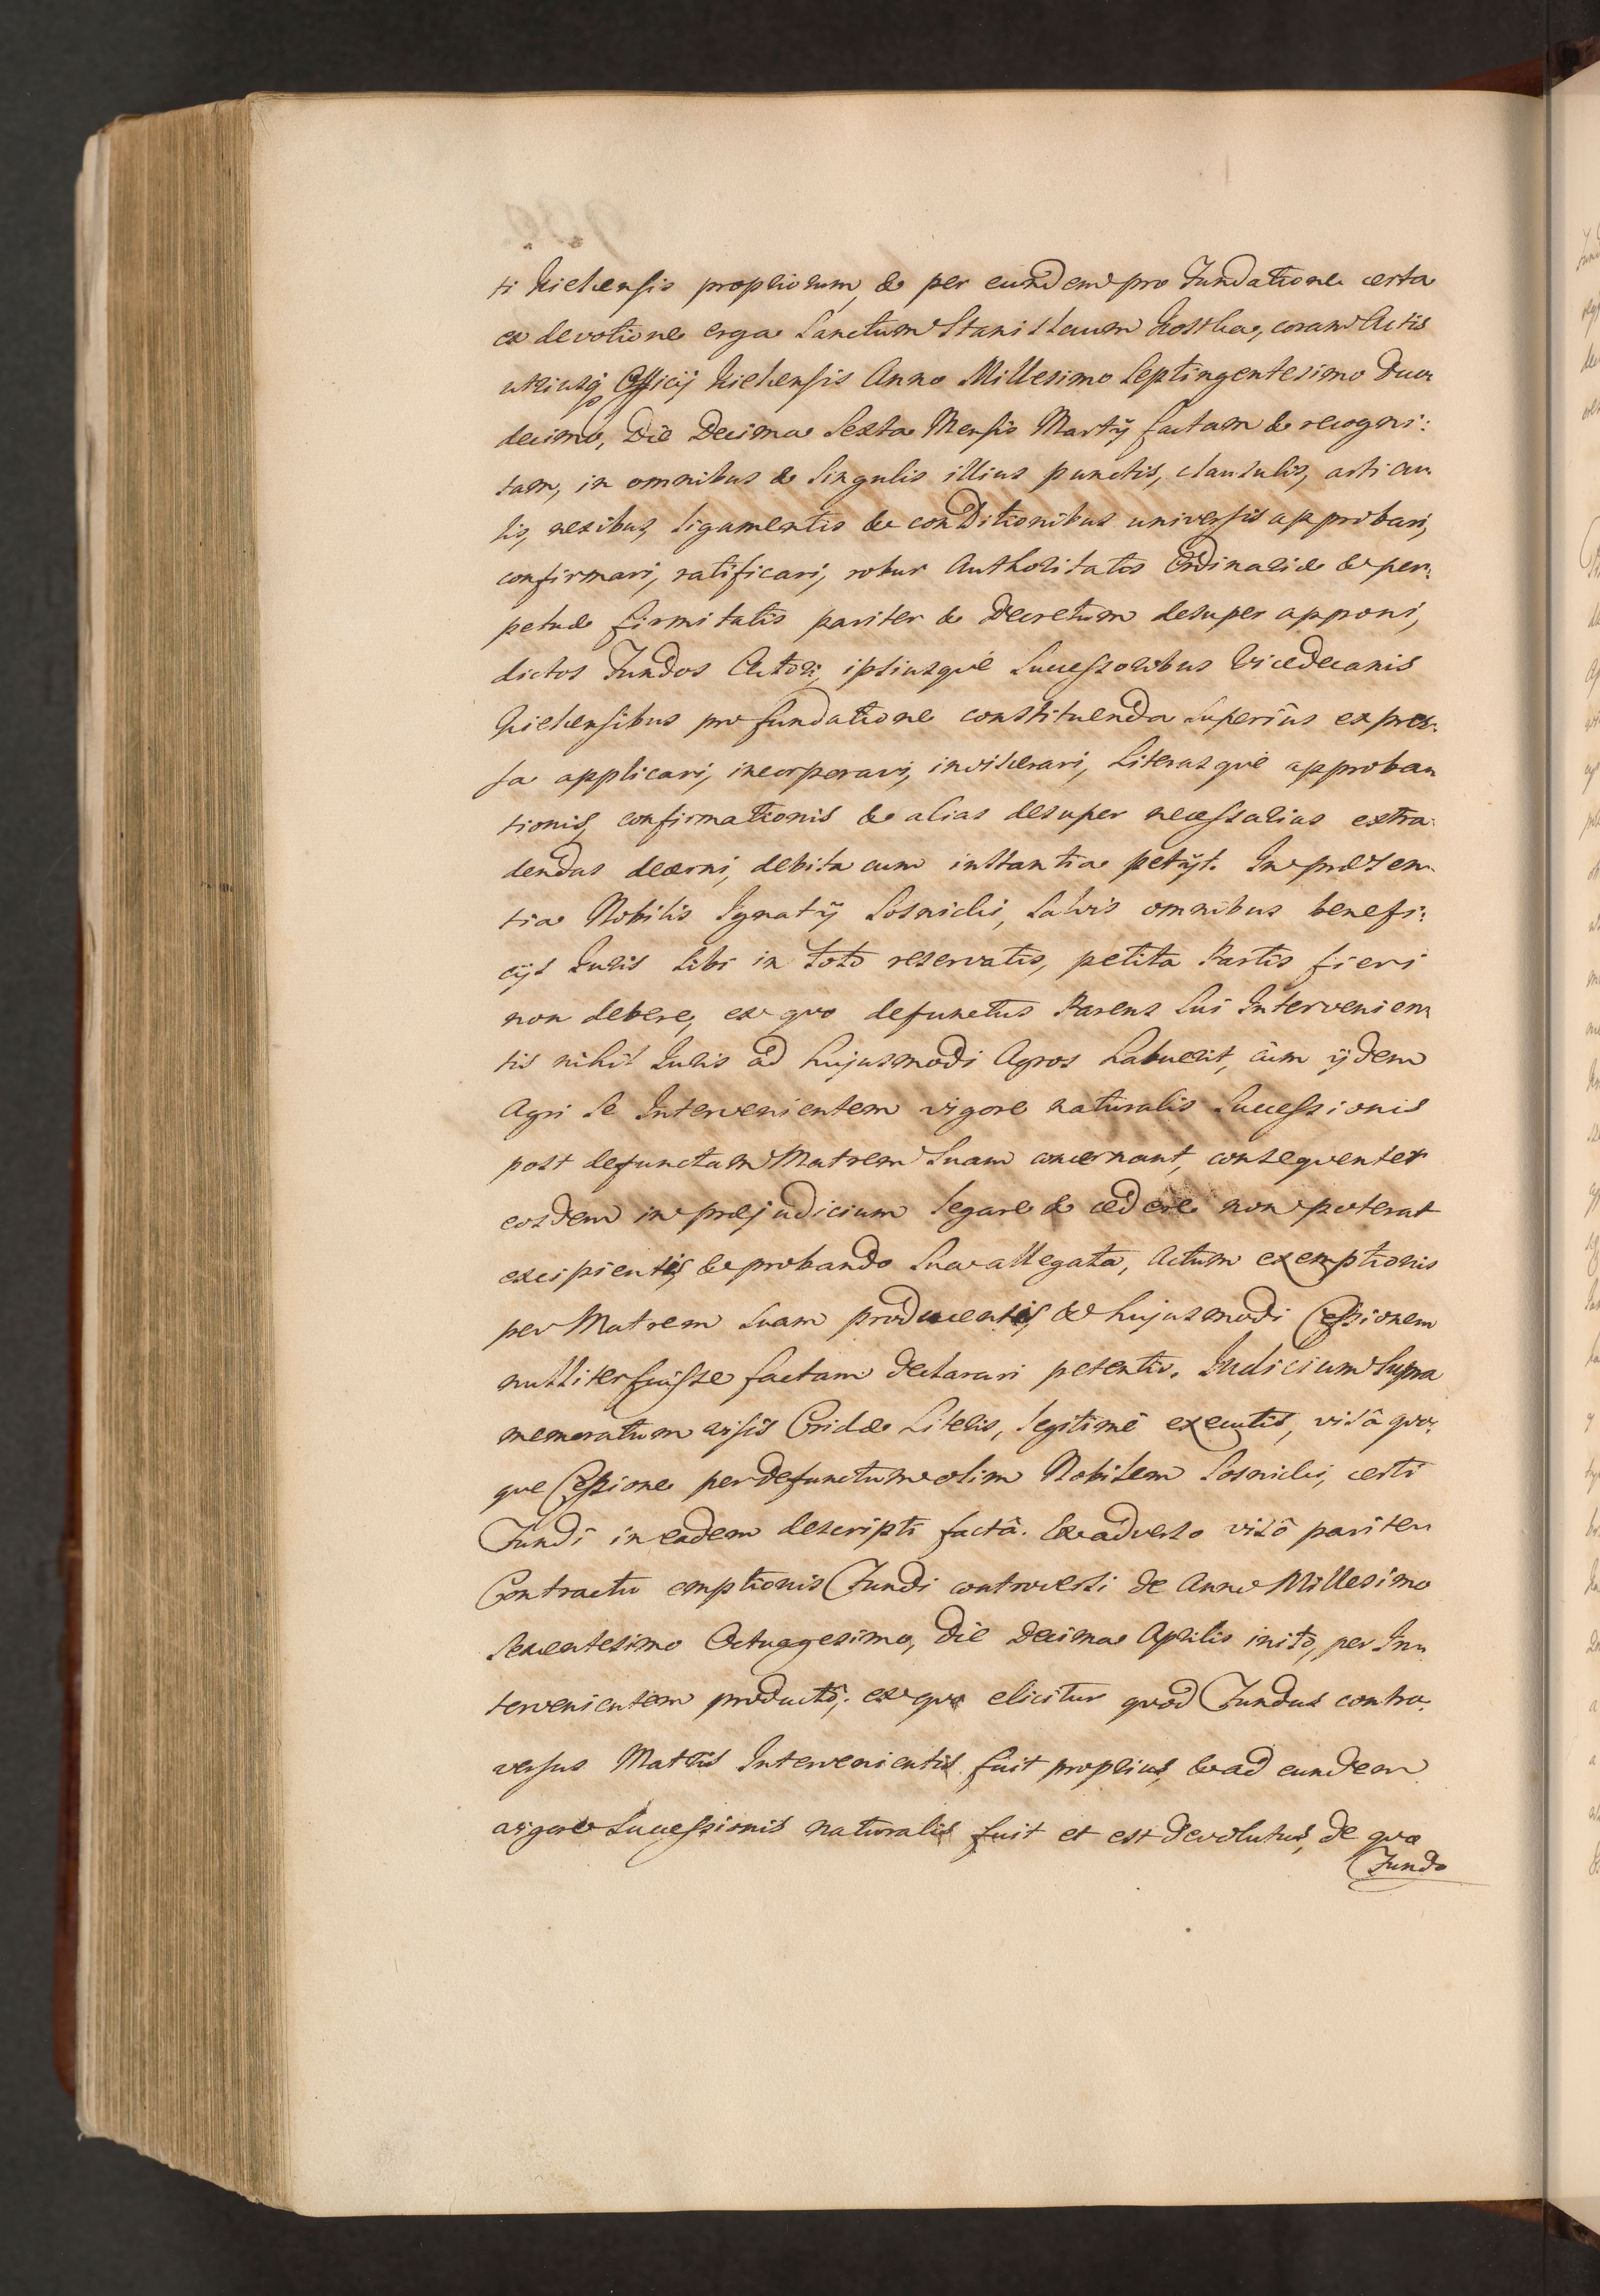 ti Kielcensis propriorum, & per eundem pro Fundatione certa
ex devotione erga Sanctum Stanislaum Kostka, coram Actis
utriusq; Officij Kielcensis Anno Millesimo Septingentesimo Duo-
decimo, Die Decima Sexta Mensis Martij factam & recogni:
tam, in omnibus & singulis illius punctis, clausulis, articu-
lis, nexibus, ligamentis & conditionibus universis approbari,
confirmari, ratificari, robur Authoritatis Ordinariæ & per:
petuæ firmitatis pariter & Decretum desuper apponi,
dictos Fundos Actori, ipsiusquè Successoribus Vicedecanis
Kielcensibus pro fundatione constituenda superiùs expres-
sa applicari, incorporari, inviscerari, Literasquè approba-
tionis, confirmationis & alias desuper necessarias extra-
dendas decerni, debita cum instantia petijt. In præsen-
tia Nobilis Ignatij Sosnicki, salvis omnibus benefi:
cijs Iuris sibi in toto reservatis, petita Partis fieri
non debere, ex quo defunctus Parens sui Intervenien-
tis nihil Iuris ad hujusmodi Agros habuerit, cùm ijdem
Agri se Intervenientem vigore naturalis Successionis
post defunctam Matrem suam concernant, consequenter
eosdem in præjudicium legare & cedere non poterat
excipientis, & probando sua allegata, Actum exemptionis
per Matrem suam producentis, & hujusmodi Cessionem
nulliter fuisse factam declarari petentis. Iudicium Supra
memoratum visis Cridæ Literis, legitimè executis, visâ quo:
que Cessione per defunctum olim Nobilem Sosnicki, certi
Fundi in eadem descripti factâ. Ex adverso visô pariter
Contractu emptionis Fundi controversi de Anno Millesimo
Sexcentesimo Octuagesimo, Die Decima Aprilis inito, per In-
tervenientem productô; ex quo elicitur quod Fundus contro-
versus Matris Intervenientis fuit proprius, & ad eundem
vigore Successionis naturalis fuit et est devolutus, de quo
Fundo